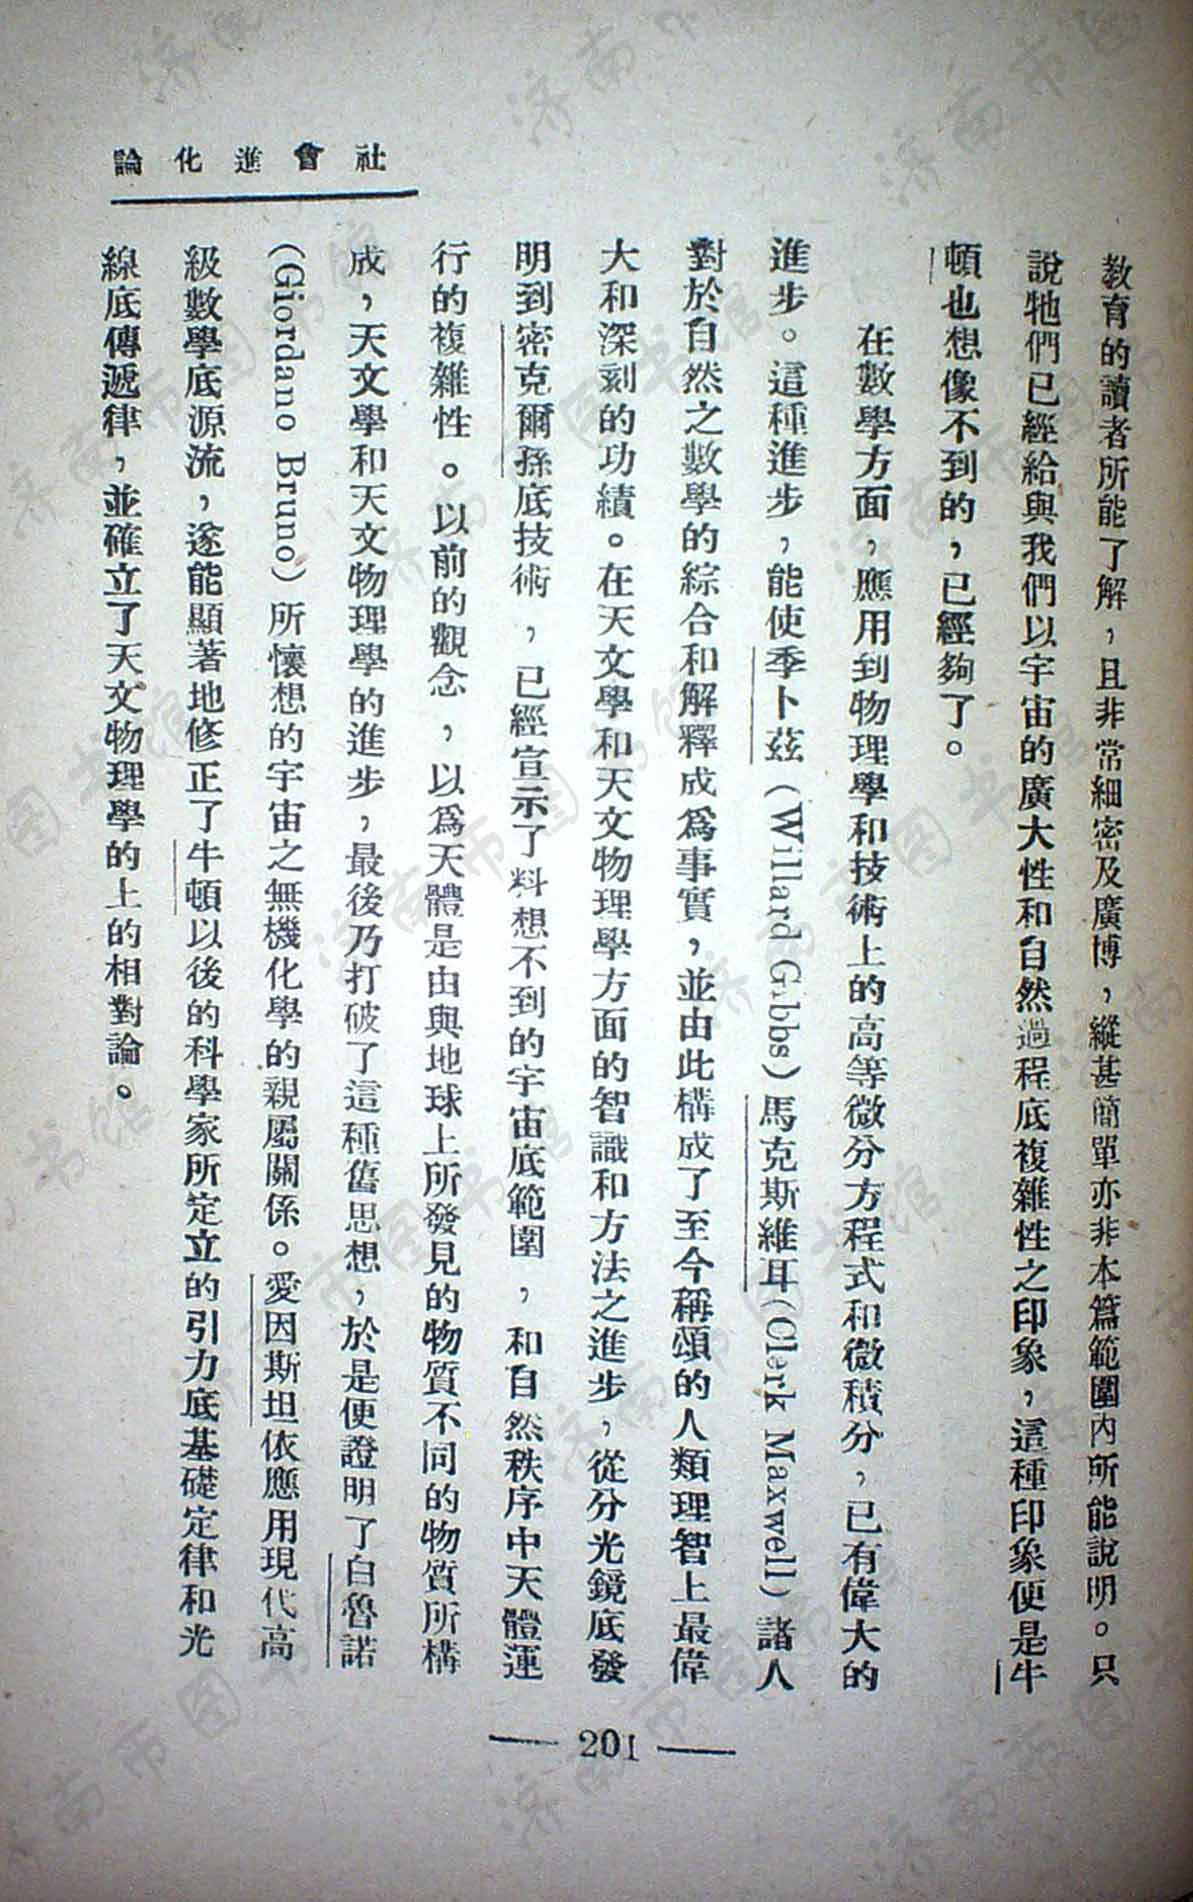 社會進化論
教育的讀者所能了解，且非常細密及廣博，縱甚簡單亦非本篇範圍內所能說明。只
說牠們已經給與我們以宇宙的廣大性和自然過程底複雜性之印象，這種印象便是牛
頓也想像不到的，已經夠了。
在數學方面，應用到物理學和技術上的高等微分方程式和微積分，已有偉大的
進步。這種進步，能使季卜茲（Willard Gibbs）馬克斯維耳（Clerk Maxwell）諸人
對於自然之數學的綜合和解釋成爲事實，並由此構成了至今稱頌的人類理智上最偉
大和深刻的功績。在天文學和天文物理學方面的智識和方法之進步，從分光鏡底發
明到密克爾孫底技術，已經宣示了料想不到的宇宙底範圍，和自然秩序中天體運
行的複雜性。以前的觀念，以爲天體是由與地球上所發見的物質不同的物質所構
成，天文學和天文物理學的進步，最後乃打破了這種舊思想，於是便證明了白魯諾
（Giordano Bruno）所懷想的宇宙之無機化學的親屬關係。愛因斯坦依應用現代高
級數學底源流，遂能顯著地修正了牛頓以後的科學家所定立的引力底基礎定律和光
線底傳遞律，並確立了天文物理學的上的相對論。
— 201 —
济南市图书馆